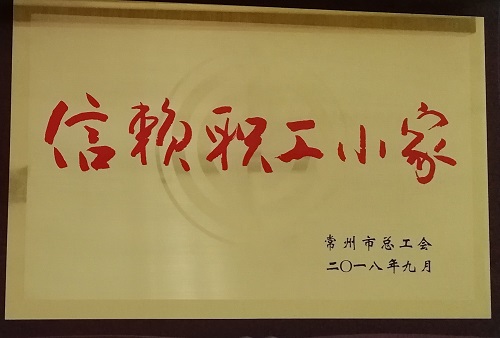 信赖职工小家
常州市总工会
二〇一八年九月